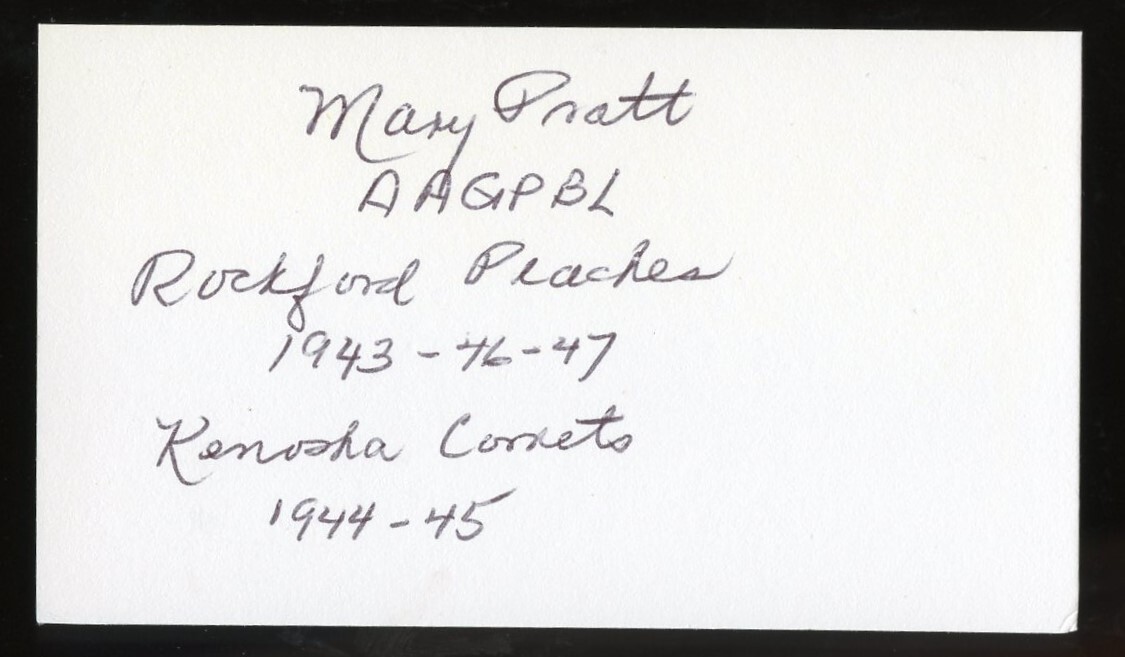 Mary Pratt
AAGPBL
Rockford Peaches
1943-46-47
Kenosha Comets
1944-45